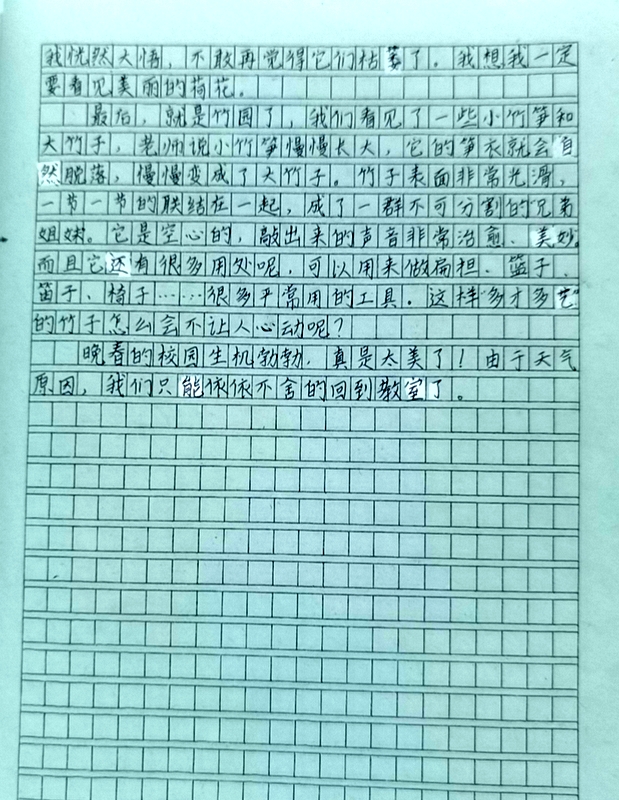 我恍然大悟，不敢再觉得它们枯萎了。我想我一定
要看见美丽的荷花。
最后，就是竹园了，我们看见了一些小竹笋和
大竹子，老师说小竹笋慢慢长大，它的笋衣就会自
然脱落，慢慢变成了大竹子。竹子表面非常光滑，
一节一节的联结在一起，成了一群不可分割的兄弟
姐妹。它是空心的，敲出来的声音非常治愈、美妙。
而且它还有很多用处呢，可以用来做扁担、篮子、
笛子、椅子……很多平常用的工具。这样“多才多艺”
的竹子怎么会不让人心动呢？
晚春的校园生机勃勃，真是太美了！由于天气
原因，我们只能依依不舍的回到教室了。